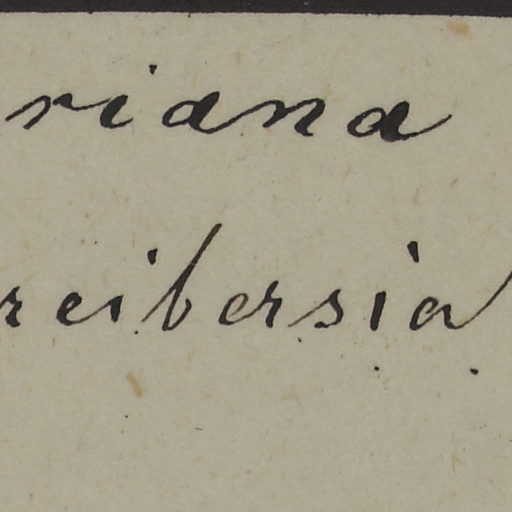 riana
reibersia